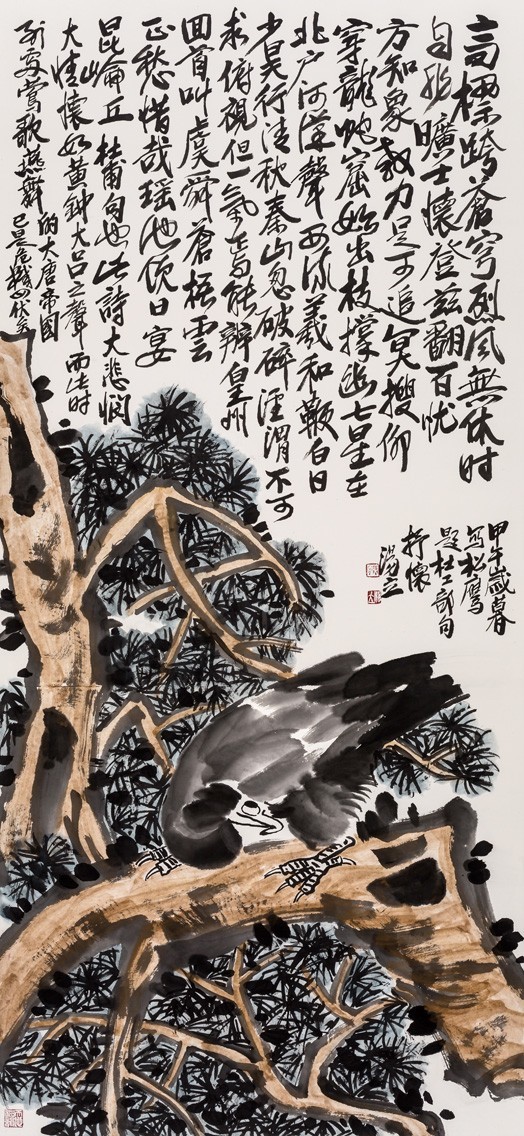 高標跨蒼穹烈风無休时
自非曠士懷登兹翻百忧
方知象教力足可追冥搜仰
穿龍蛇窟始出枝撑幽七星在
北户河漢聲西流羲和鞭白日
少昊行清秋秦山忽破碎涇渭不可
求俯視但一氣焉能辨皇州
回首叫虞舜蒼梧雲
正愁惜哉瑶池饮日宴
昆崙丘 杜甫句也此詩大悲悯
大情懷如黄鈡大吕之聲而此时
到處鶯歌燕舞
的大唐帝國
已是危機四伏矣
甲午歲春
寫松鷹
題杜工部句
抒懷
湯立